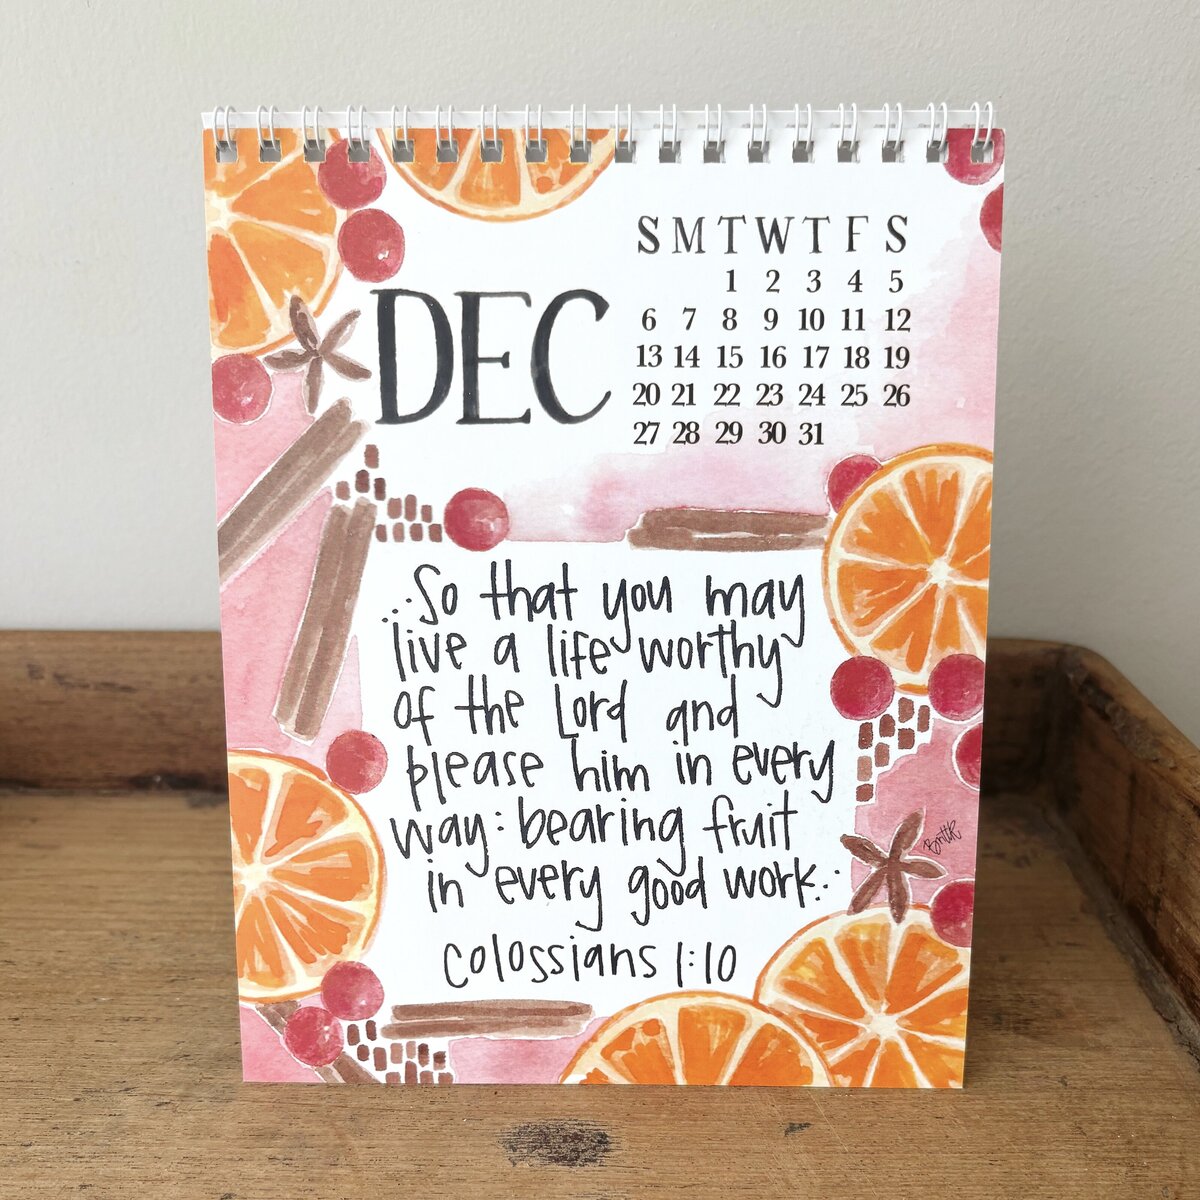 DEC
S M T W T F S
1 2 3 4 5
6 7 8 9 10 11 12
13 14 15 16 17 18 19
20 21 22 23 24 25 26
27 28 29 30 31
...So that you may
live a life worthy
of the Lord and
please him in every
way: bearing fruit
in every good work...
Colossians 1:10